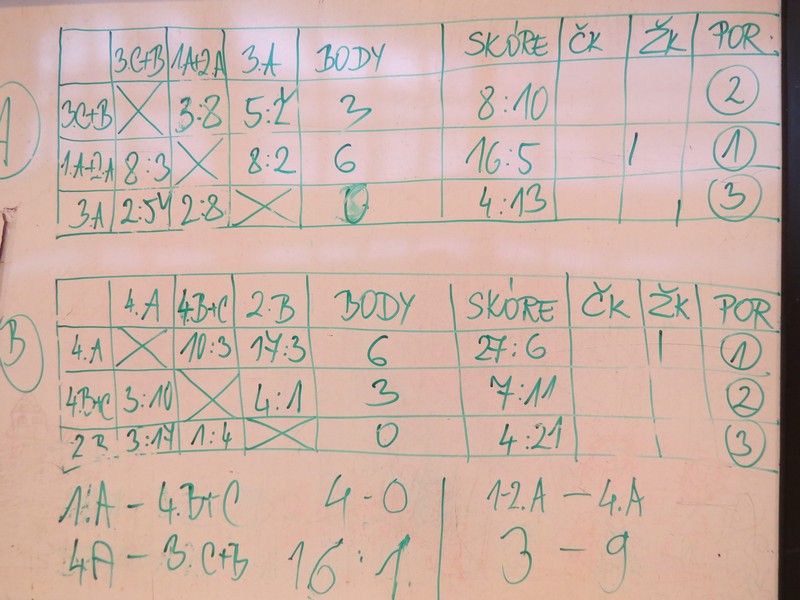 3.C+B 1.A+2.A 3.A BODY SKÓRE ČK ŽK POR.
A
3.C+B 3:8 5:2 3 8:10 2
1.A+2.A 8:3 8:2 6 16:5 | 1
3.A 2:5 2:8 0 4:13 | 3
B
4.A 4.B+C 2.B BODY SKÓRE ČK ŽK POR
4.A 10:3 17:3 6 27:6 | 1
4.B+C 3:10 4:1 3 7:11 2
2.B 3:17 1:4 0 4:21 | 3
4.B+C 4-0 1-2.A – 4.A
4A – 3.C+B 16:1. 3 – 9